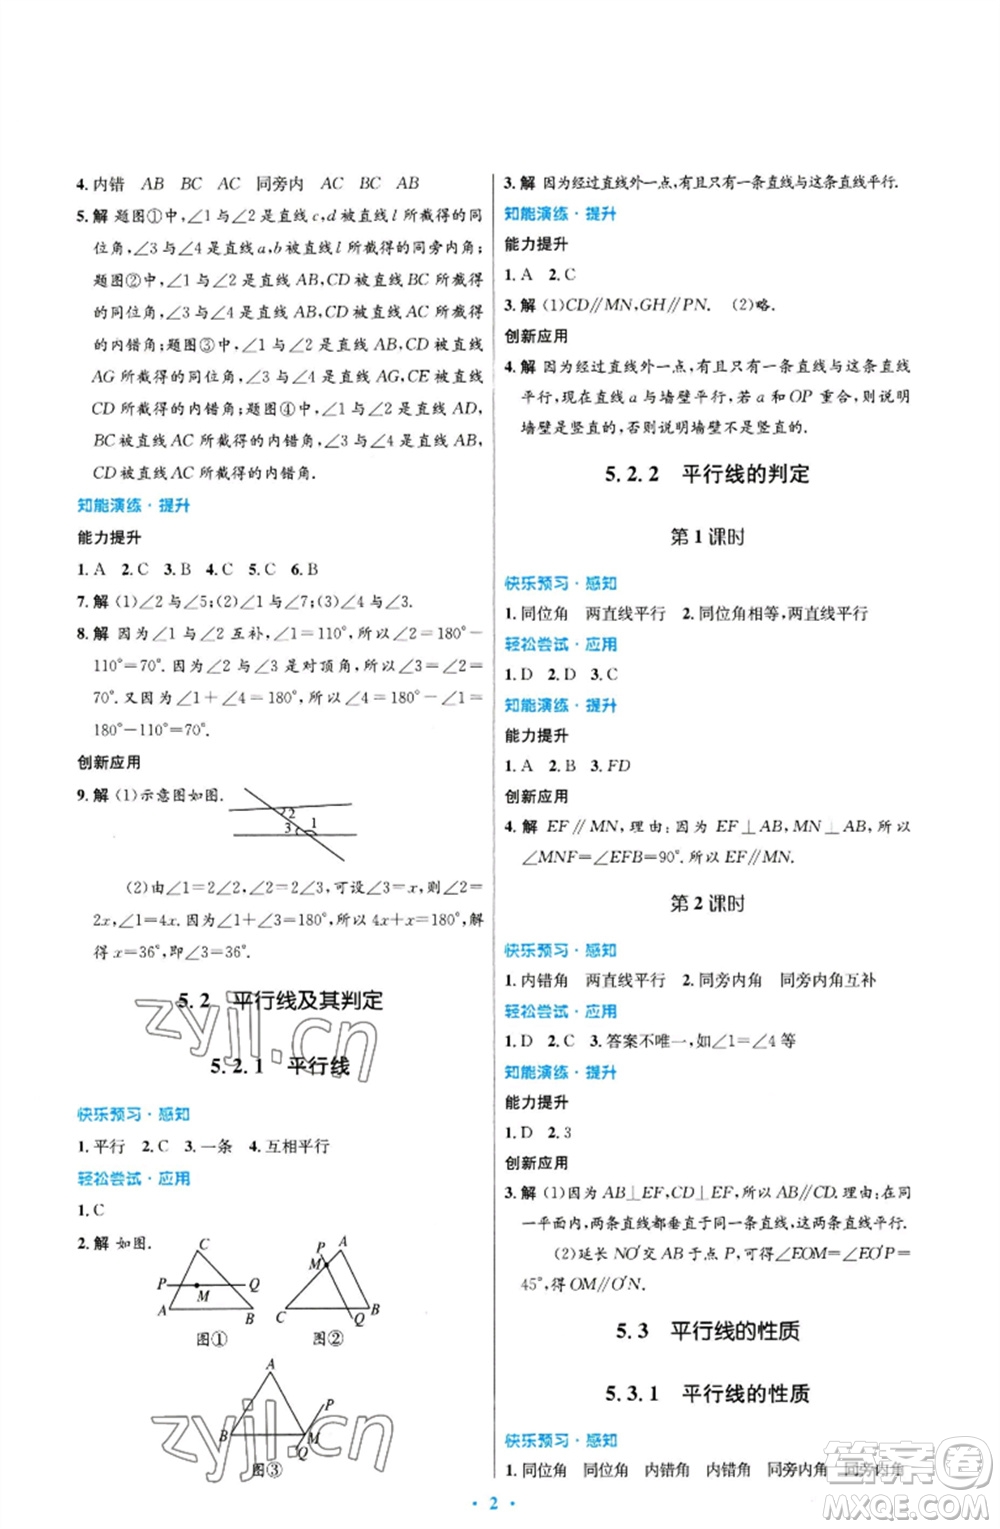 4.内错　AB　BC　AC　同旁内　AC　BC　AB
5.解 题图①中,∠1与∠2是直线c,d被直线l所截得的同
位角,∠3与∠4是直线a,b被直线l所截得的同旁内角;
题图②中,∠1与∠2是直线AB,CD被直线BC所截得
的同位角,∠3与∠4是直线AB,CD被直线AC所截得
的内错角;题图③中,∠1与∠2是直线AB,CD被直线
AG所截得的同位角,∠3与∠4是直线AG,CE被直线
CD所截得的内错角;题图④中,∠1与∠2是直线AD,
BC被直线AC所截得的内错角,∠3与∠4是直线AB,
CD被直线AC所截得的内错角.
知能演练·提升
能力提升
1.A　2.C　3.B　4.C　5.C　6.B
7.解 (1)∠2与∠5;(2)∠1与∠7;(3)∠1与∠3.
8.解 因为∠1与∠2互补,∠1=110°,所以∠2=180°−
110°=70°.因为∠2与∠3是对顶角,所以∠3=∠2=
70°.又因为∠1+∠4=180°,所以∠4=180°−∠1=
180°−110°=70°.
创新应用
9.解 (1)示意图如图.
2
3 1
(2)由∠1=2∠2,∠2=2∠3,可设∠3=x,则∠2=
2x,∠1=4x.因为∠1+∠3=180°,所以4x+x=180°,解
得x=36°,即∠3=36°.
5.2　平行线及其判定
5.2.1　平行线
快乐预习·感知
1.平行　2.C　3.一条　4.互相平行
轻松尝试·应用
1.C
2.解 如图.
C
P Q
M
A B
图①
P A
M
C B
Q
图②
A
P
B M
Q
图③
3.解 因为经过直线外一点,有且只有一条直线与这条直线平行.
知能演练·提升
能力提升
1.A　2.C
3.解 (1)CD∥MN,GH∥PN.　(2)略.
创新应用
4.解 因为经过直线外一点,有且只有一条直线与这条直线
平行,现在直线a与墙壁平行,若a和OP重合,则说明
墙壁是竖直的,否则说明墙壁不是竖直的.
5.2.2　平行线的判定
第1课时
快乐预习·感知
1.同位角　两直线平行　2.同位角相等,两直线平行
轻松尝试·应用
1.D　2.D　3.C
知能演练·提升
能力提升
1.A　2.B　3.FD
创新应用
4.解 EF∥MN,理由:因为EF⊥AB,MN⊥AB,所以
∠MNF=∠EFB=90°.所以EF∥MN.
第2课时
快乐预习·感知
1.内错角　两直线平行　2.同旁内角　同旁内角互补
轻松尝试·应用
1.D　2.C　3.答案不唯一,如∠1=∠4等
知能演练·提升
能力提升
1.D　2.3
创新应用
3.解 (1)因为AB⊥EF,CD⊥EF,所以AB∥CD.理由:在同
一平面内,两条直线都垂直于同一条直线,这两条直线平行.
(2)延长NO′交AB于点P,可得∠EOM=∠EO′P=
45°,所以OM∥O′N.
5.3　平行线的性质
5.3.1　平行线的性质
快乐预习·感知
1.同位角　同位角　内错角　内错角　同旁内角　同旁内角
· 2 ·
zyjl.cn
zyjl.cn
答案圈
MXQE.COM